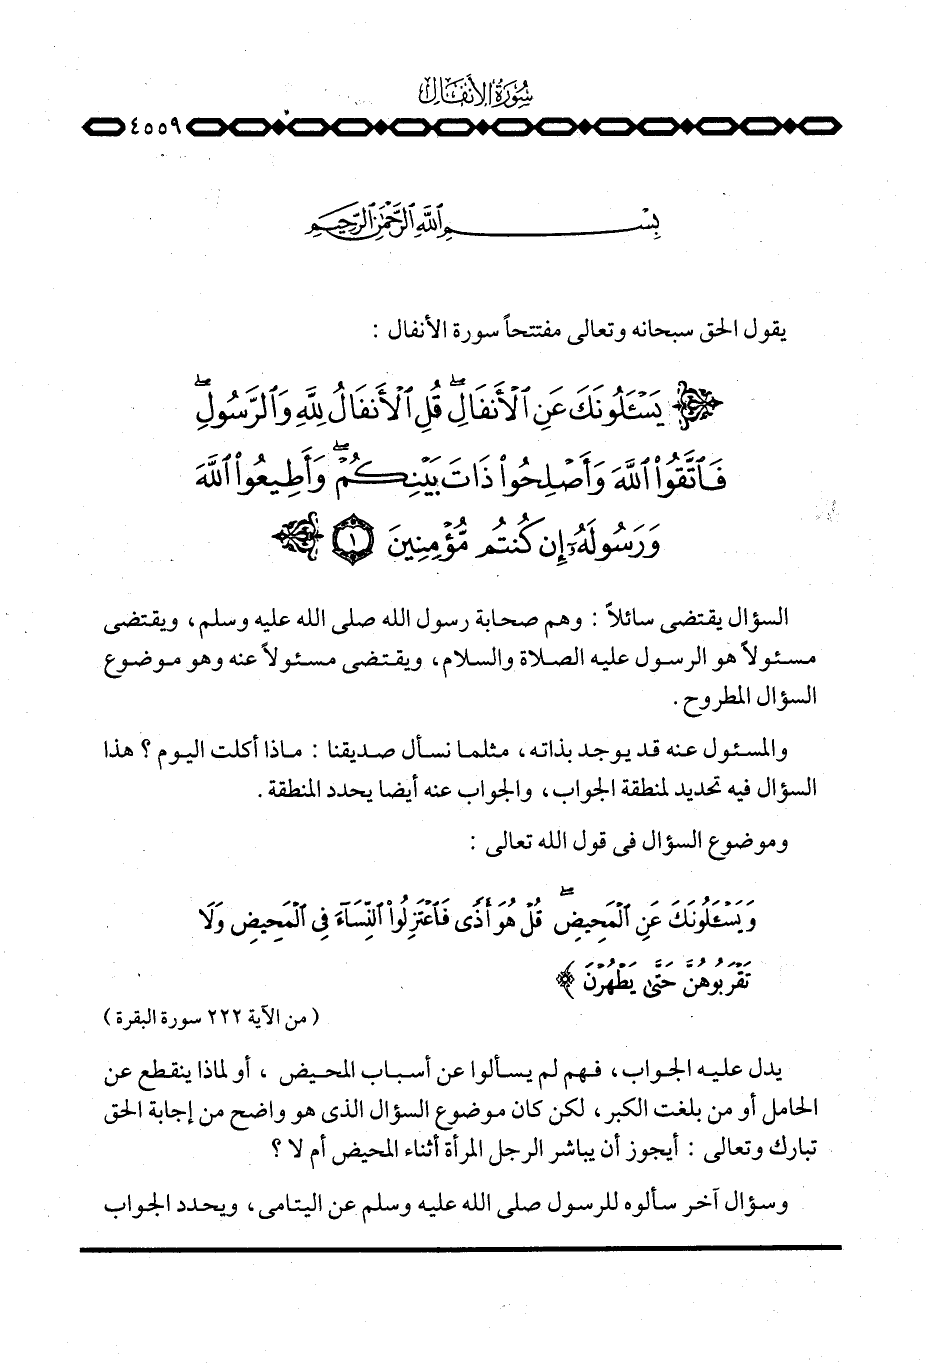 سُورَةُ الأَنفَالِ
٤٥٥٩
بِسْمِ اللَّهِ الرَّحْمَٰنِ الرَّحِيمِ
يقول الحق سبحانه وتعالى مفتتحاً سورة الأنفال :
يَسْـَٔلُونَكَ عَنِ ٱلْأَنفَالِۖ قُلِ ٱلْأَنفَالُ لِلَّهِ وَٱلرَّسُولِۖ
فَٱتَّقُوا۟ ٱللَّهَ وَأَصْلِحُوا۟ ذَاتَ بَيْنِكُمْۖ وَأَطِيعُوا۟ ٱللَّهَ
وَرَسُولَهُۥٓ إِن كُنتُم مُّؤْمِنِينَ ١
السؤال يقتضى سائلاً : وهم صحابة رسول الله صلى الله عليه وسلم، ويقتضى
مسئولاً هو الرسول عليه الصلاة والسلام، ويقتضى مسئولاً عنه وهو موضوع
السؤال المطروح .
والمسئول عنه قد يوجد بذاته، مثلما نسأل صديقنا : ماذا أكلت اليوم ؟ هذا
السؤال فيه تحديد لمنطقة الجواب، والجواب عنه أيضا يحدد المنطقة .
وموضوع السؤال فى قول الله تعالى :
وَيَسْـَٔلُونَكَ عَنِ ٱلْمَحِيضِۖ قُلْ هُوَ أَذًى فَٱعْتَزِلُوا۟ ٱلنِّسَآءَ فِى ٱلْمَحِيضِ وَلَا
تَقْرَبُوهُنَّ حَتَّىٰ يَطْهُرْنَ ﴾
( من الآية ٢٢٢ سورة البقرة )
يدل عليه الجواب، فهم لم يسألوا عن أسباب المحيض ، أو لماذا ينقطع عن
الحامل أو من بلغت الكبر، لكن كان موضوع السؤال الذى هو واضح من إجابة الحق
تبارك وتعالى : أيجوز أن يباشر الرجل المرأة أثناء المحيض أم لا ؟
وسؤال آخر سألوه للرسول صلى الله عليه وسلم عن اليتامى، ويحدد الجواب